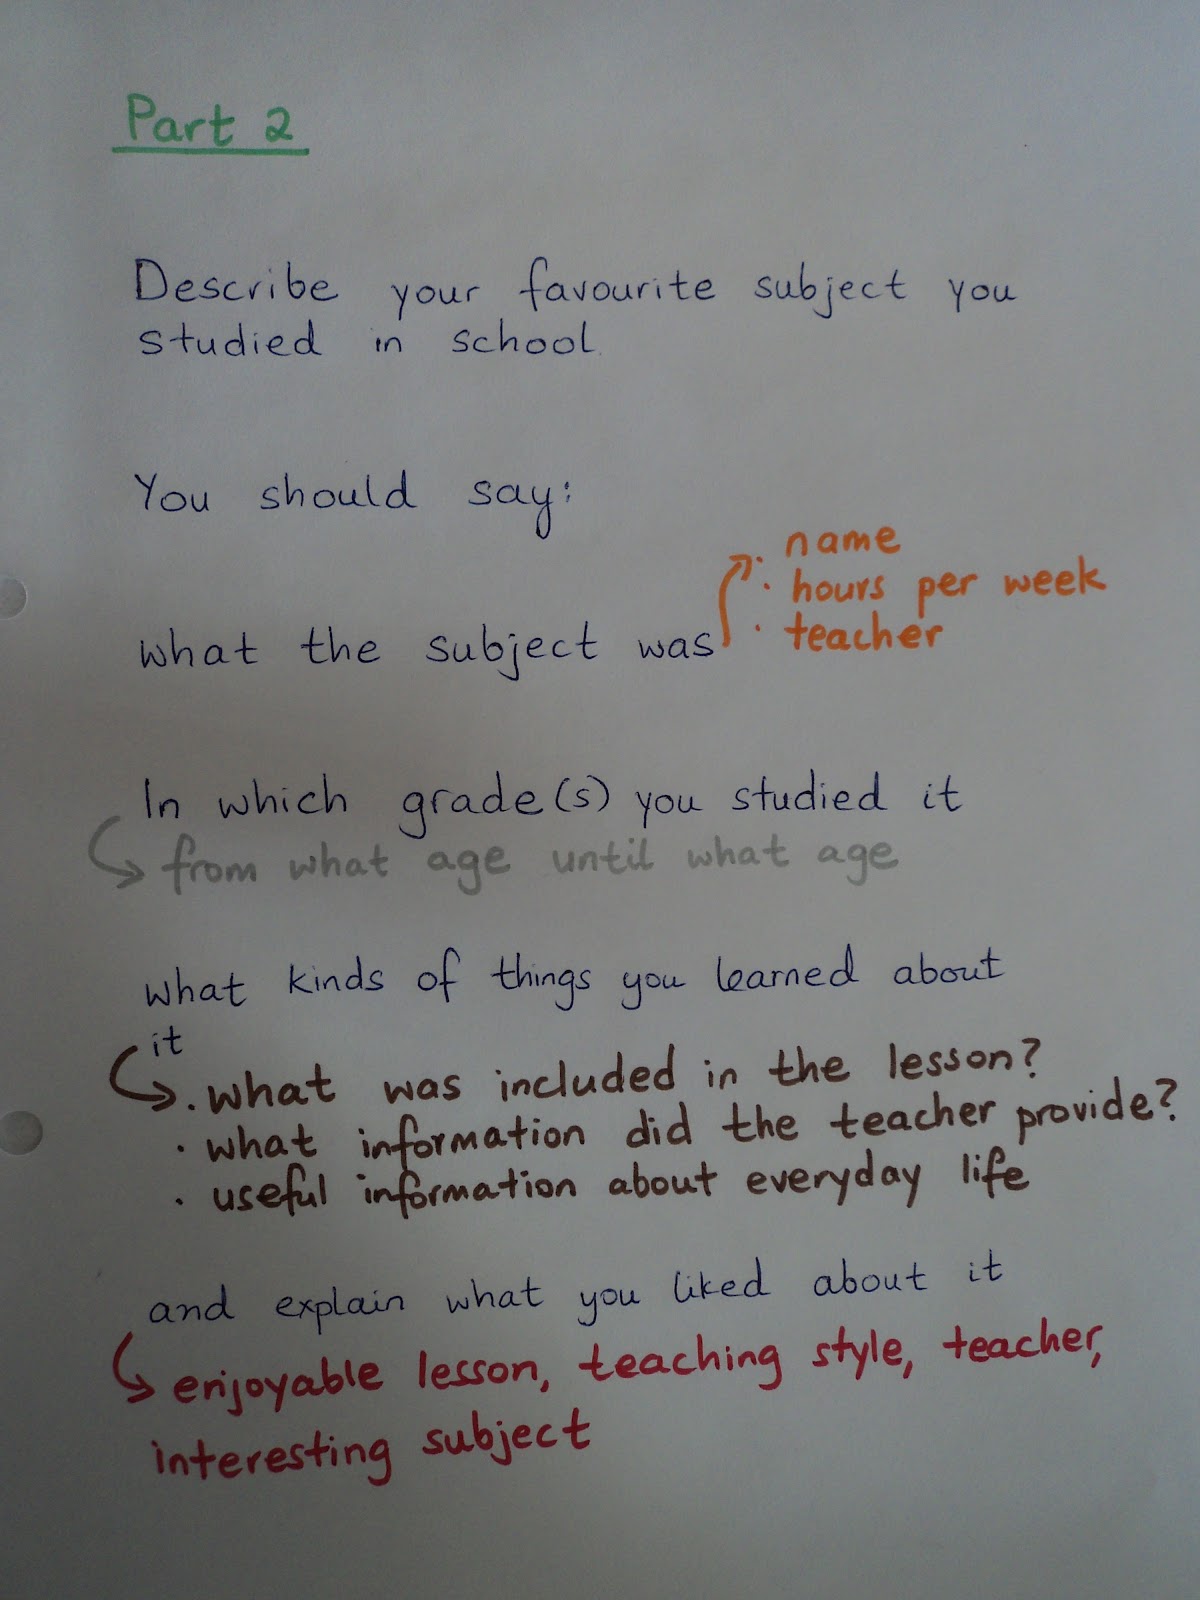 Part 2
Describe your favourite subject you
studied in school
You should say:
· name
· hours per week
what the subject was · teacher
In which grade(s) you studied it
from what age until what age
what kinds of things you learned about
it
· what was included in the lesson?
· what information did the teacher provide?
· useful information about everyday life
and explain what you liked about it
enjoyable lesson, teaching style, teacher,
interesting subject